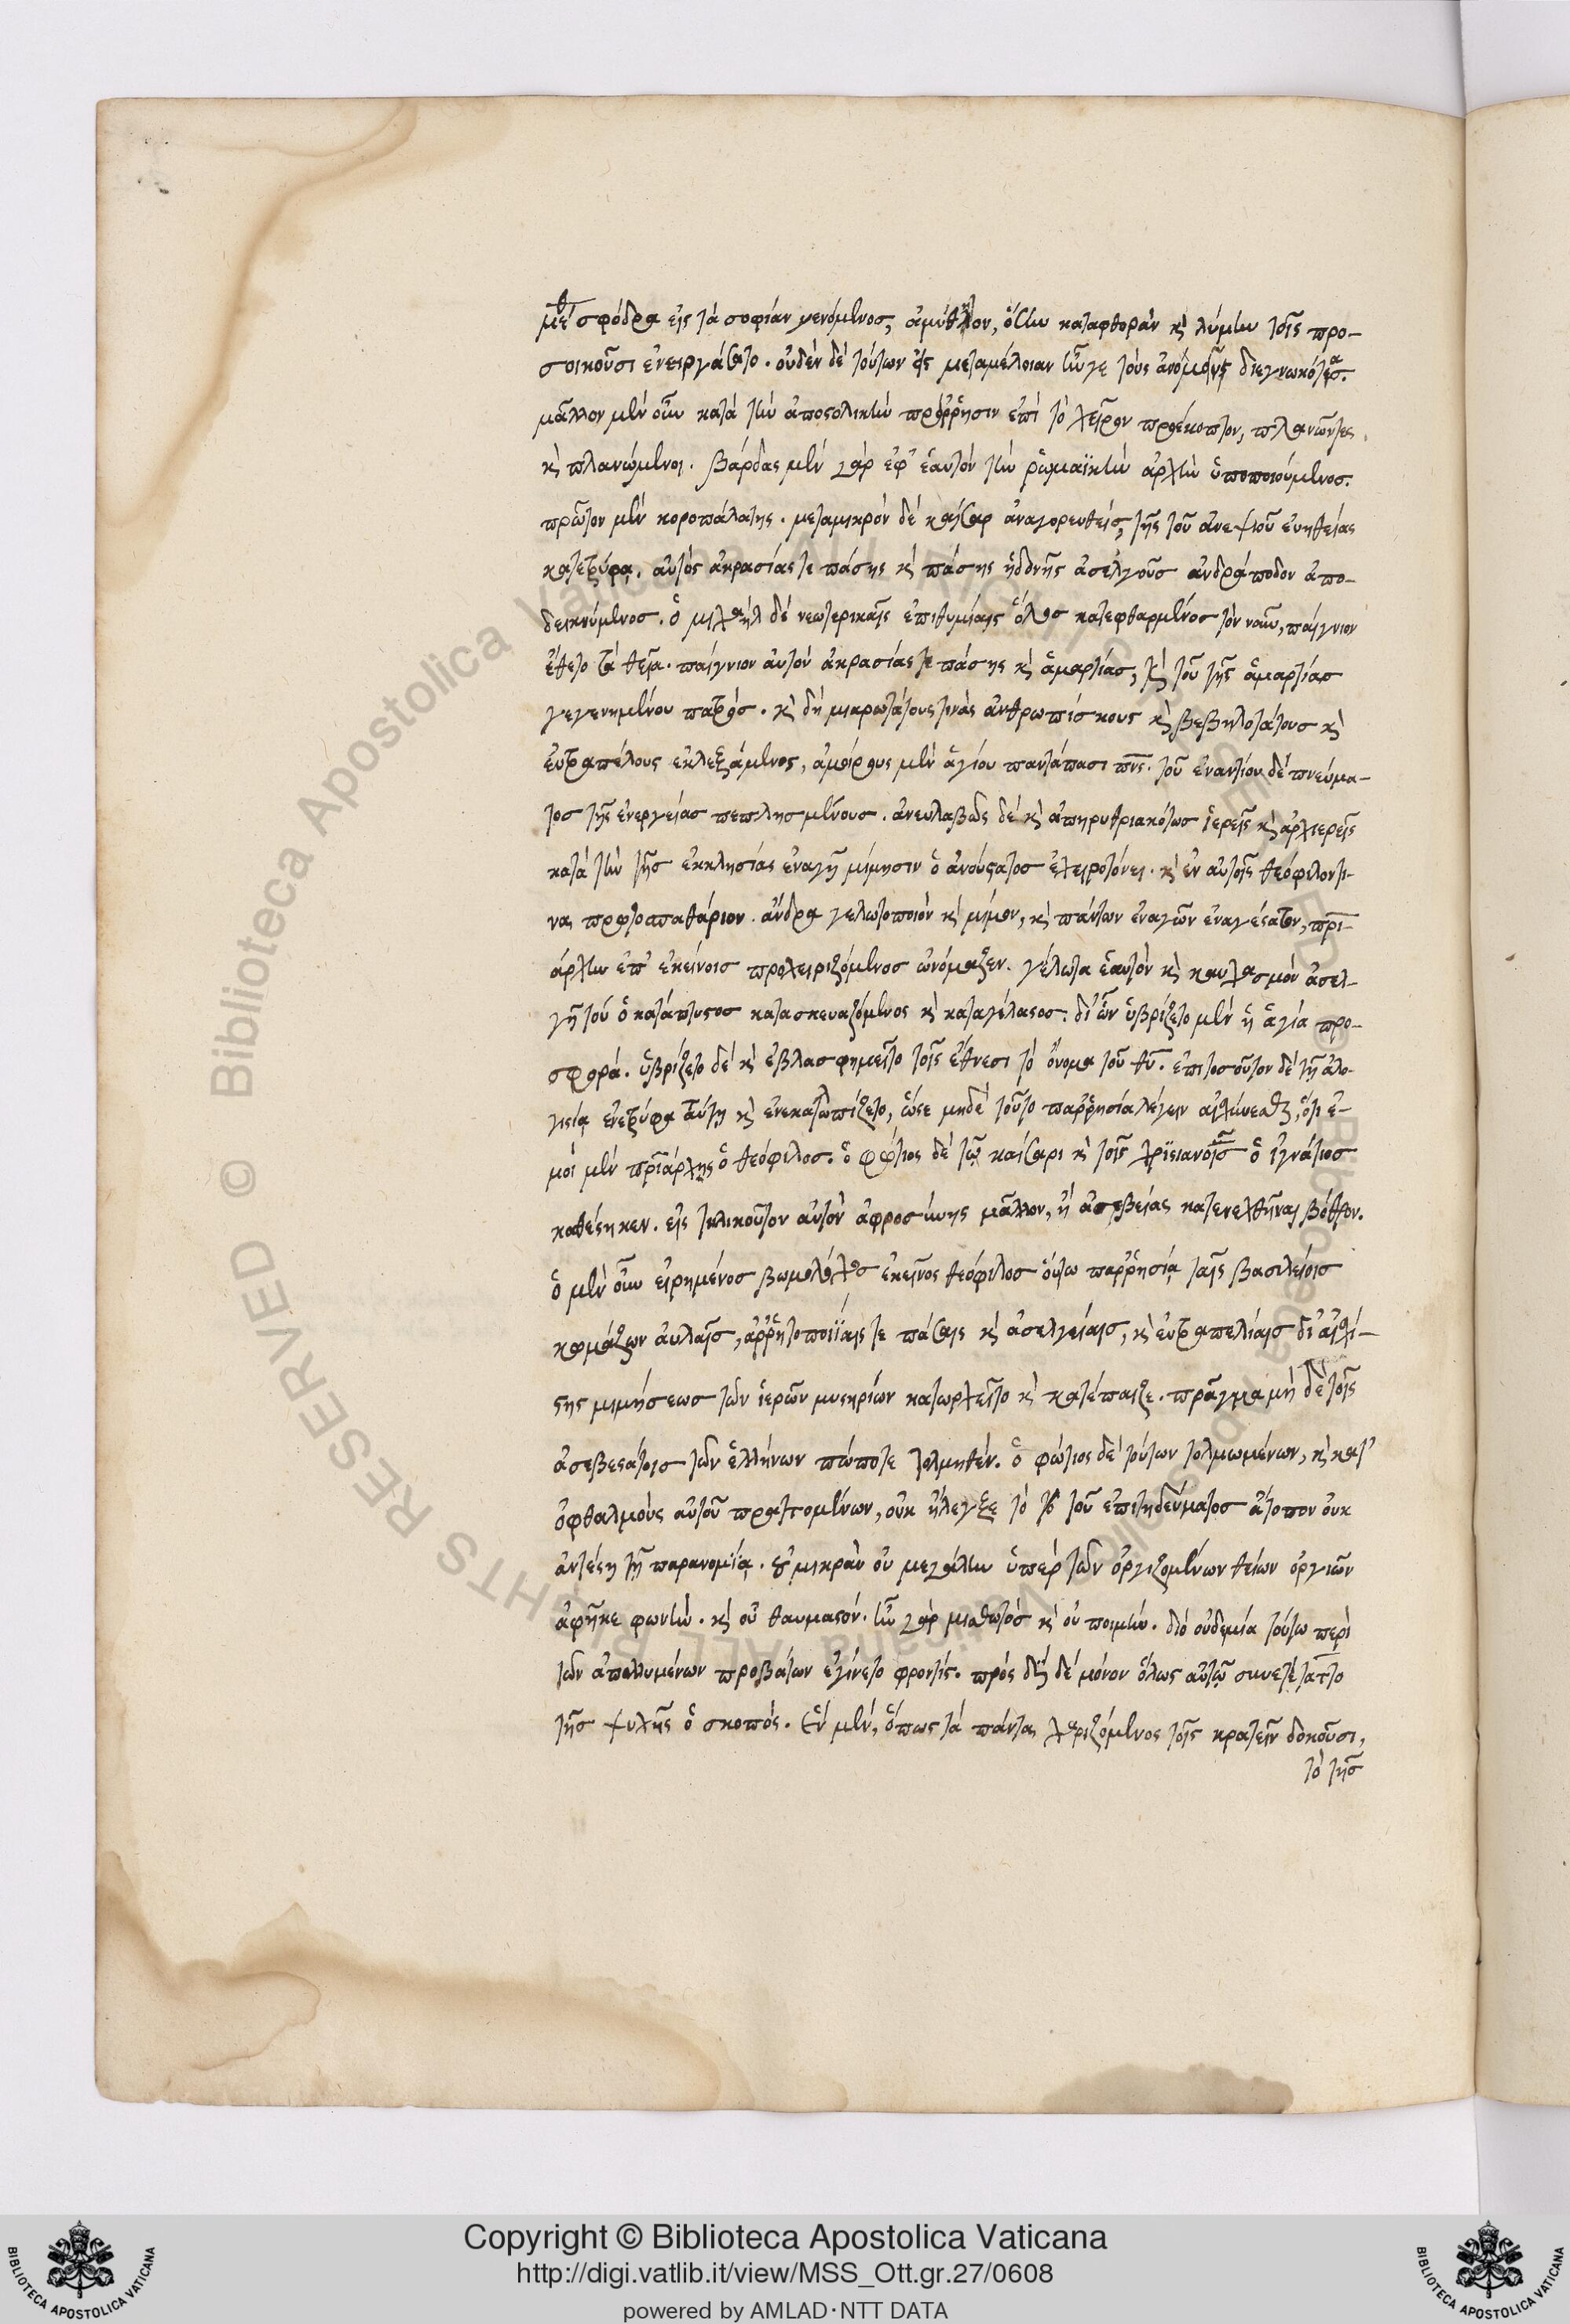 σφόδρα εἰς τὰ σοφίαν γενόμενος, ἀμύθητον, ὅσην καταφθορὰν κὶ λύμην τοῖς προ-
σοικοῦσι ἐνειργάσατο. οὐδὲν δὲ τούτων εἰς μεταμέλειαν ἦγε τοὺς διεγνωκότας.
μᾶλλον μὲν οὖν κατὰ τὴν ἀποστολικὴν πρόῤῥησιν ἐπὶ τὸ χεῖρον προέκοπτον, πλανῶντες
κὶ πλανώμενοι. βάρδας μὲν γὰρ ἐφ' ἑαυτὸν τὴν ῥωμαϊκὴν ἀρχὴν ὑποποιούμενος.
πρῶτον μὲν κοροπάλατης. μεταμικρὸν δὲ καῖσαρ ἀναγορευθείς, τῆς τοῦ ἀνεψιοῦ εὐηθείας
κατετρύφα. αὐτὸς ἀκρασίας τε πάσης κὶ πάσης ἡδονῆς ἀσελγοῦς ἀνδράποδον ἀπο-
δεικνύμενος. ὁ μιχαὴλ δὲ νεωτερικαῖς ἐπιθυμίαις ὅλος κατεφθαρμένος τὸν νοῦν, παίγνιον
ἔθετο τὰ θεῖα. παίγνιον αὐτὸν ἀκρασίας τε πάσης κὶ ἁμαρτίας, κὶ τοῦ τῆς ἁμαρτίας
γεγενημένου πατρός. κὶ δὴ μιαρωτάτους τινὰς ἀνθρωπίσκους κὶ βεβηλοτάτους κὶ
εὐτραπέλους ἐκλεξάμενος, ἀμοίρους μὲν ἁγίου παντάπασι πνς. τοῦ ἐναντίου δὲ πνεύμα-
τος τῆς ἐνεργείας πεπλησμένους. ἀνευλαβῶς δὲ κὶ ἀπηρυθριακότως ἱερεῖς κὶ ἀρχιερεῖς
κατὰ τὴν τῆς ἐκκλησίας ἐναγῆ μίμησιν ὁ ἀνούστατος ἐχειροτόνει. κὶ ἐν αὐτοῖς θεόφιλον τι-
να πρωτοσπαθάριον. ἄνδρα γελωτοποιὸν κὶ μῖμον, κὶ πάντων ἐναγῶν ἐναγέστατον, πρι-
άρχην ἐπ' ἐκείνοις προχειριζόμενος ὠνόμαζεν. γέλωτα ἑαυτὸν κὶ καγχασμὸν ἀσελ-
γῆ τοῦ ὁ κατάπτυστος κατασκευαζόμενος κὶ καταγέλαστος. δι' ὧν ὑβρίζετο μὲν ἡ ἁγία προ-
σφορά. ὑβρίζετο δὲ κὶ ἐβλασφημεῖτο τοῖς ἔθνεσι τὸ ὄνομα τοῦ θυ. ἐπιτοσοῦτον δὲ τῇ ἀλο-
γιστίᾳ ἐνετρύφα ταύτῃ κὶ ἐνεκαλλωπίζετο, ὥστε μηδὲ τοῦτο παῤῥησίᾳ λέγειν αἰσχύνεσθαι, ὅτι ἐ-
μοὶ μὲν πριάρχης ὁ θεόφιλος. ὁ φώτιος δὲ τῷ καίσαρι κὶ τοῖς χριστιανοῖς ὁ ἰγνάτιος
καθέστηκεν. εἰς τηλικοῦτον αὐτὸν ἀφροσύνης μᾶλλον, ἢ ἀσεβείας κατενεχθῆναι βόθρον.
ὁ μὲν οὖν εἰρημένος βωμολόχος ἐκεῖνος θεόφιλος οὕτω παῤῥησίᾳ ταῖς βασιλείοις
κωμάζων αὐλαῖς, ἀῤῥητοποιΐαις τε πάσαις κὶ ἀσελγείαις, κὶ εὐτραπελίαις δι' αἰσχί-
στης μιμήσεως τῶν ἱερῶν μυστηρίων κατωρχεῖτο κὶ κατέπαιζε. πρᾶγμα μὴ δὲ τοῖς
ἀσεβεστάτοις τῶν ἑλλήνων πώποτε τολμηθέν. ὁ φώτιος δὲ τούτων τολμωμένων, κὶ κατ'
ὀφθαλμοὺς αὐτοῦ πραττομένων, οὐκ ἤλεγξε τὸ τοῦ ἐπιτηδεύματος ἄτοπον οὐκ
ἀντέστη τῇ παρανομίᾳ. οὐ μικρὰν οὐ μεγάλην ὑπὲρ τῶν ὀργιζομένων θείων ὀργιῶν
ἀφῆκε φωνήν. κὶ οὐ θαυμαστόν. ἦν γὰρ μισθωτὸς κὶ οὐ ποιμήν. διὸ οὐδεμία τούτῳ περὶ
τῶν ἀπολλυμένων προβάτων ἐγίνετο φροντίς. πρὸς ἓν δὲ μόνον ὅλως αὐτῷ συνετέτατο
τῆς ψυχῆς ὁ σκοπός. ἓν μὲν, ὅπως τὰ πάντα χαριζόμενος τοῖς κρατεῖν δοκοῦσι,
τὸ τῆς
Copyright © Biblioteca Apostolica Vaticana
http://digi.vatlib.it/view/MSS_Ott.gr.27/0608
powered by AMLAD·NTT DATA